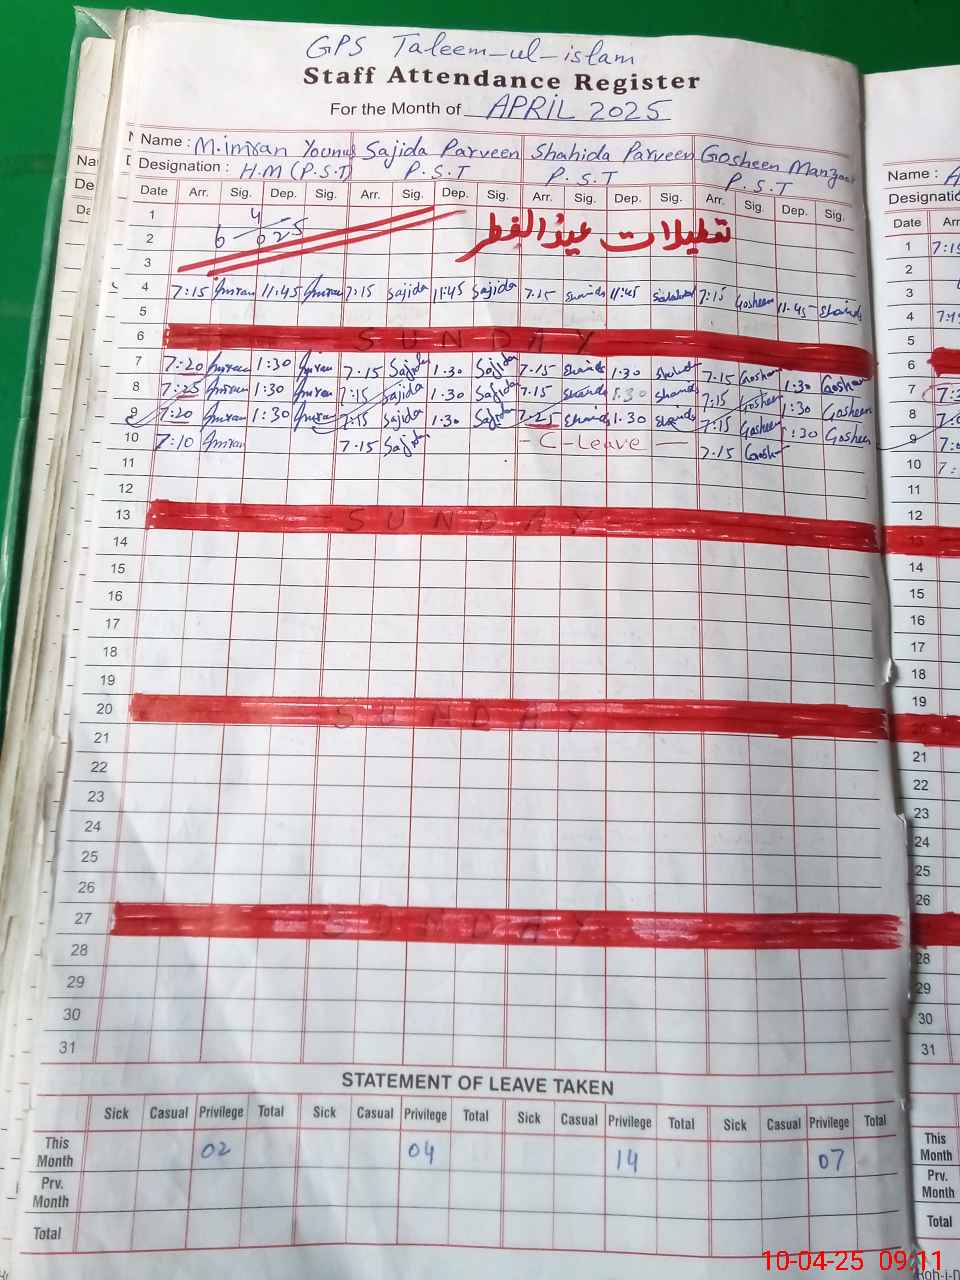 GPS Taleem-ul-islam
Staff Attendance Register
For the Month of APRIL 2025
Name : M.imran Younus Sajida Parveen Shahida Parveen Gosheen Manzoor
Designation : H.M (P.S.T) P.S.T P.S.T P.S.T
Date Arr. Sig. Dep. Sig. Arr. Sig. Dep. Sig. Arr. Sig. Dep. Sig. Arr. Sig. Dep. Sig.
1
2 تعطیلات عیدالفطر
3
4 7:15 Imran 11:45 Imran 7:15 Sajida 11:45 Sajida 7.15 11:45 7:15 Gosheen 11:45
5
6 SUNDAY
7 7:20 Imran 1:30 Imran 7.15 Sajida 1.30 Sajida 7.15 1:30 7.15 Gosheen 1:30 Gosheen
8 7:25 Imran 1:30 Imran 7:15 Sajida 1.30 Sajida 7.15 1.30 7:15 Gosheen 1:30 Gosheen
9 7:20 Imran 1:30 Imran 7:15 Sajida 1.30 Sajida 7.25 1.30 7:15 Gosheen 1:30 Gosheen
10 7:10 Imran 7.15 Sajida - C - Leave - 7.15 Gosheen
11
12
13 SUNDAY
14
15
16
17
18
19
20 SUNDAY
21
22
23
24
25
26
27 SUNDAY
28
29
30
31
STATEMENT OF LEAVE TAKEN
Sick Casual Privilege Total Sick Casual Privilege Total Sick Casual Privilege Total Sick Casual Privilege Total
This Month 02 04 14 07
Prv. Month
Total
Name :
Date
1 7:15
2
3
4
5
6
7
8
9
10
11
12
13
14
15
16
17
18
19
21
22
23
24
25
26
28
29
30
31
This Month
Prv. Month
Total
10-04-25 09:11